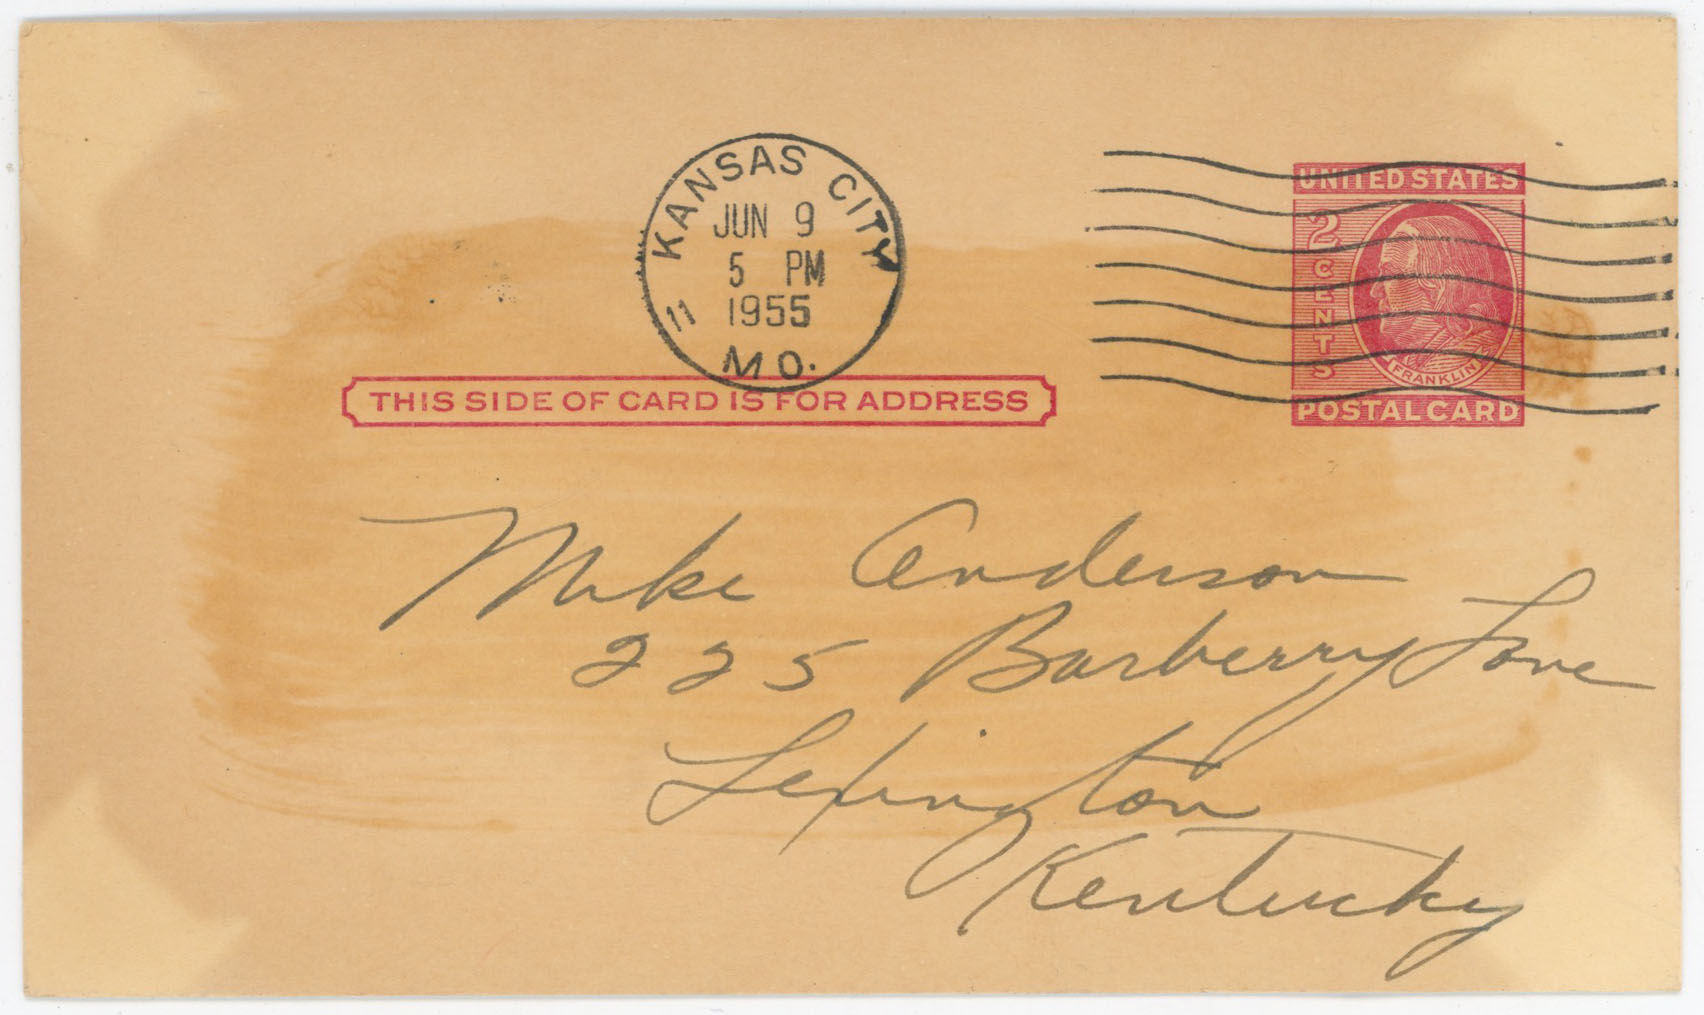 KANSAS CITY
JUN 9
5 PM
1955
11
MO.
UNITED STATES
2 CENTS
FRANKLIN
POSTAL CARD
THIS SIDE OF CARD IS FOR ADDRESS
Mike Anderson
225 Barberry Lane
Lexington
Kentucky